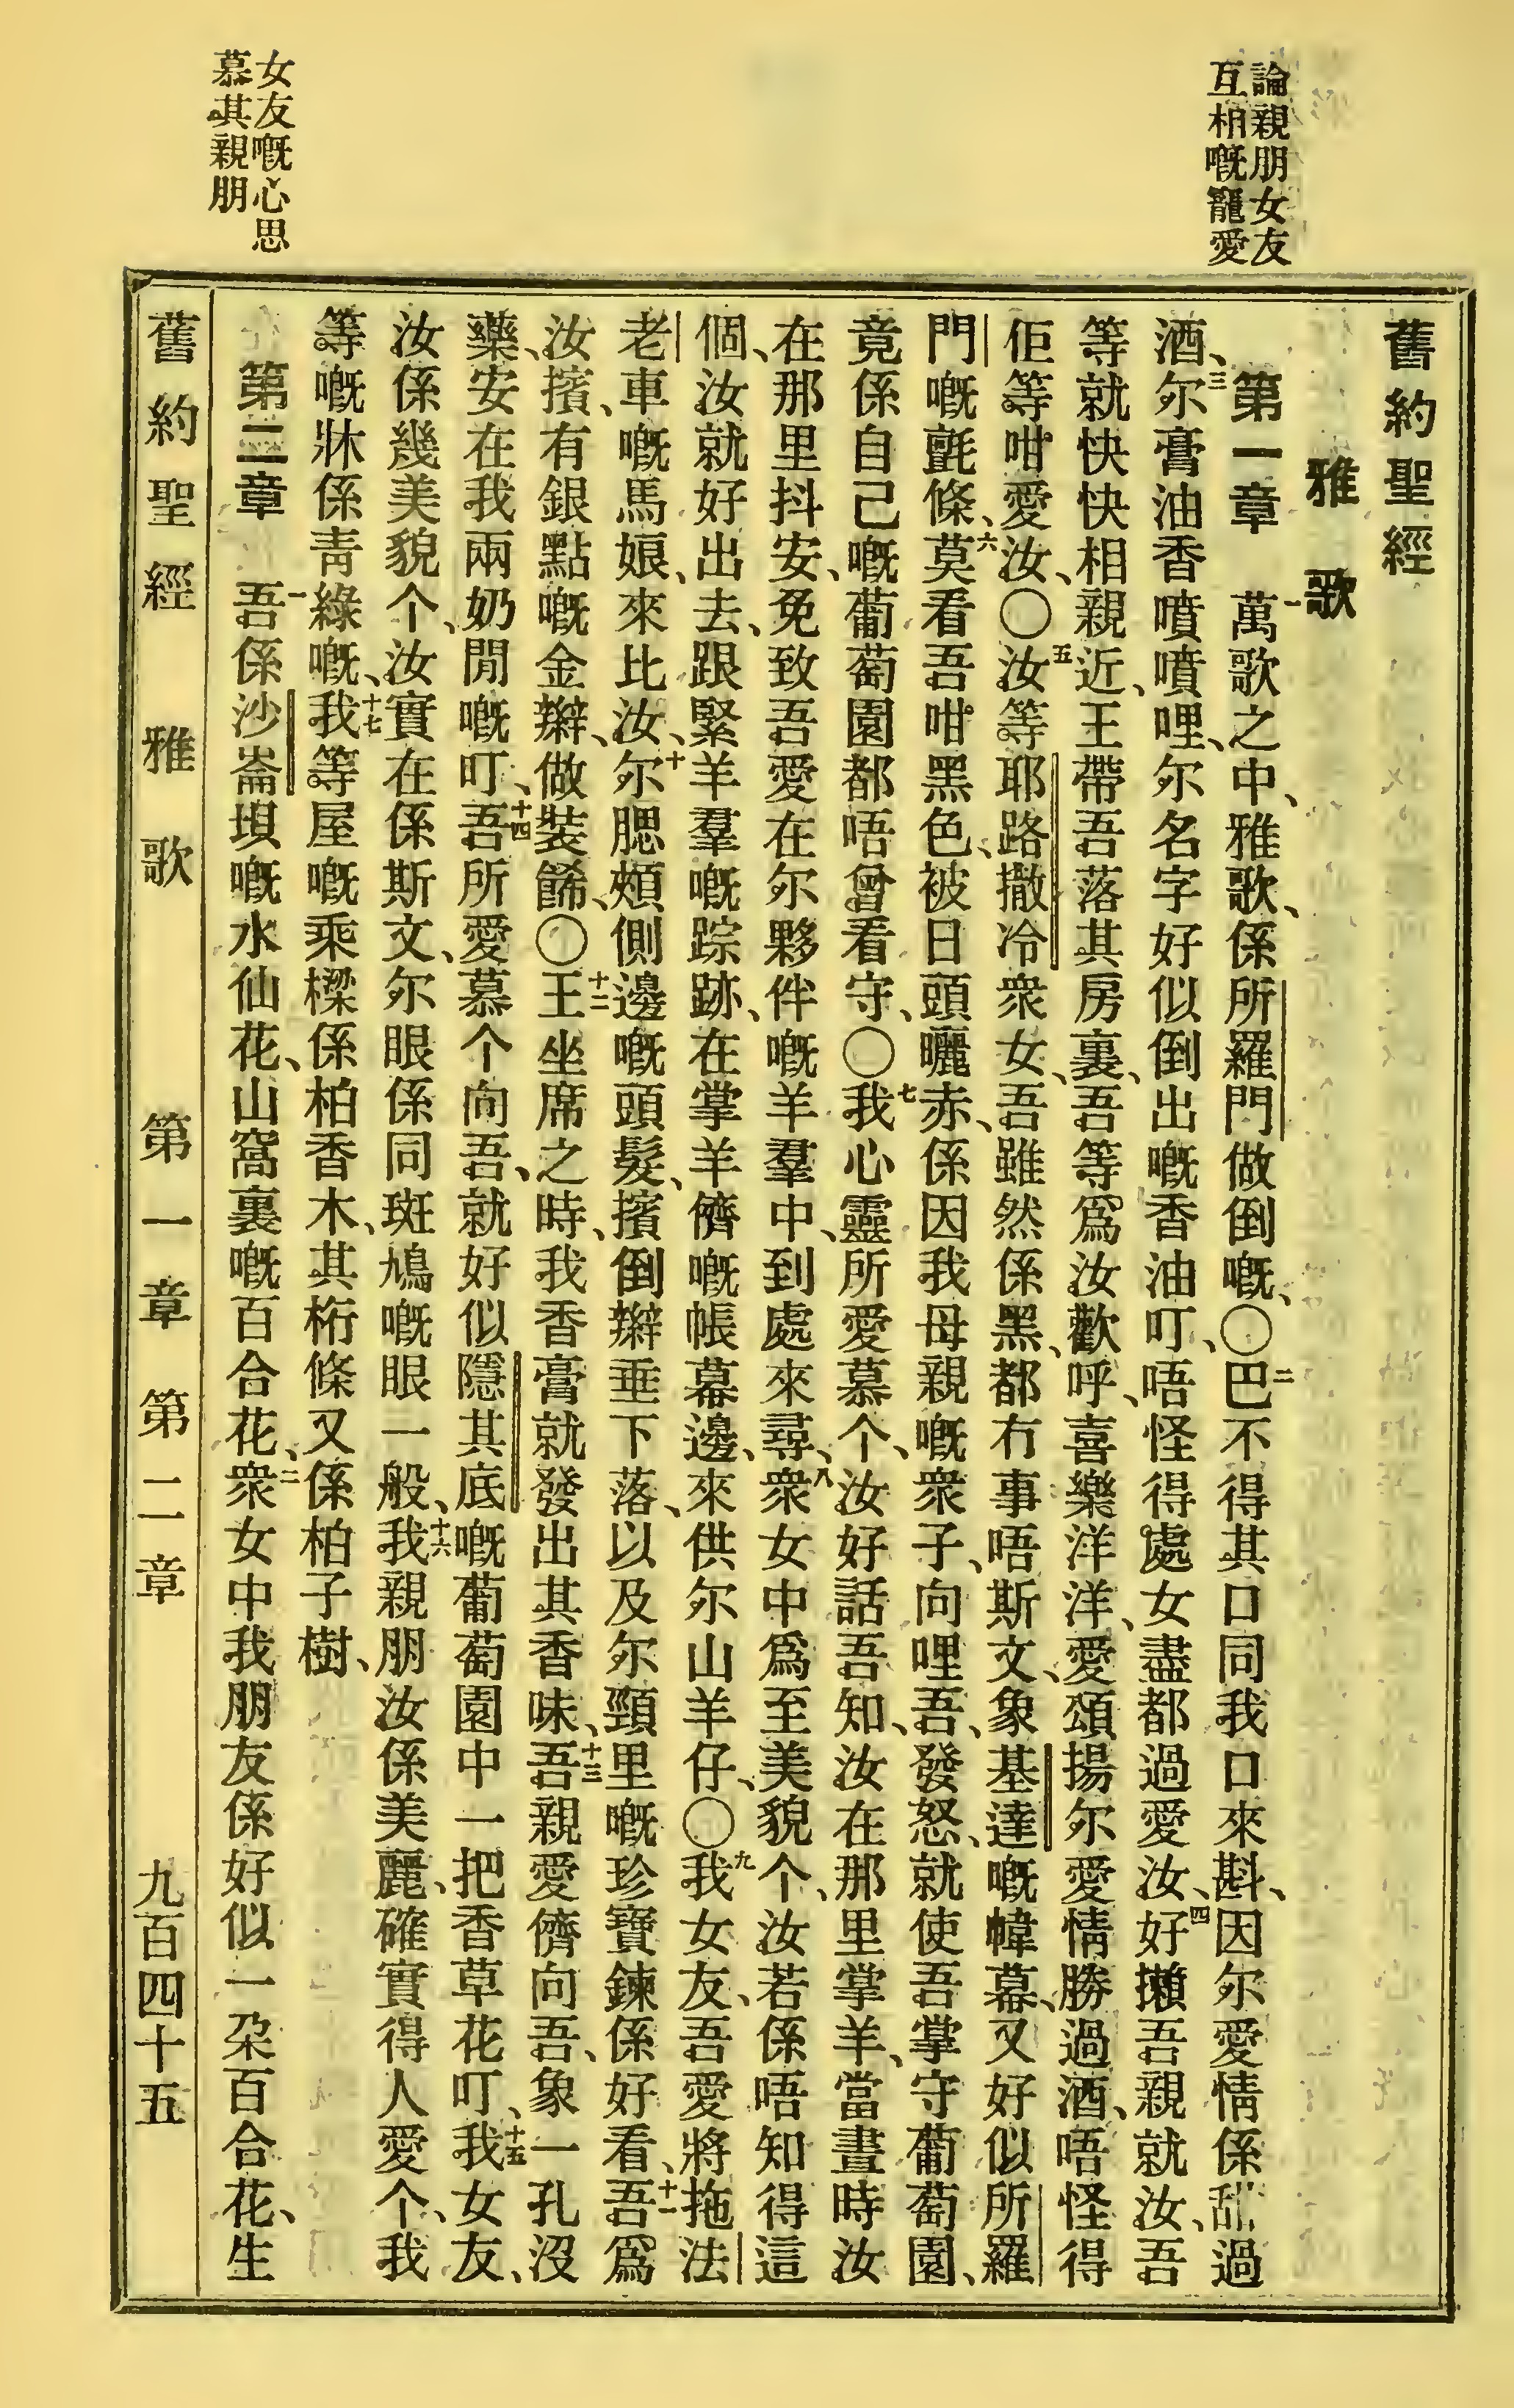 論親朋女友
互相嘅寵愛
女友嘅心思
慕其親朋
舊約聖經
雅歌
第一章 一萬歌之中、雅歌、係所羅門做倒嘅、〇二巴不得其口同我口來斟、因尔愛情係甜過
酒、三尔膏油香噴噴哩、尔名字好似倒出嘅香油叮、唔怪得處女盡都過愛汝、四好攋吾親就汝、吾
等就快快相親近、王帶吾落其房裏、吾等爲汝歡呼、喜樂洋洋、愛頌揚尔愛情勝過酒、唔怪得
佢等咁愛汝、〇五汝等耶路撒冷衆女、吾雖然係黑、都冇事唔斯文、象基達嘅幃幕、又好似所羅
門嘅氈條、六莫看吾咁黑色、被日頭曬赤、係因我母親嘅衆子、向哩吾、發怒、就使吾掌守葡萄園、
竟係自己嘅葡萄園都唔曾看守、〇七我心靈所愛慕个、汝好話吾知、汝在那里掌羊、當晝時汝
在那里抖安、免致吾愛在尔夥伴嘅羊羣中、到處來尋、八衆女中爲至美貌个、汝若係唔知得這
個、汝就好出去、跟緊羊羣嘅踪跡、在掌羊儕嘅帳幕邊、來供尔山羊仔、〇九我女友、吾愛將拖法
老車嘅馬娘、來比汝、十尔腮頰側邊嘅頭髮、擯倒辮垂下落、以及尔頸里嘅珍寶鍊係好看、十一吾爲
汝擯、有銀點嘅金辮、做裝餙、〇十二王坐席之時、我香膏就發出其香味、十三吾親愛儕向吾、象一孔沒
藥、安在我兩奶閒嘅叮、十四吾所愛慕个向吾、就好似隱其底嘅葡萄園中一把香草花叮、十五我女友、
汝係幾美貌个、汝實在係斯文、尔眼係同斑鳩嘅眼一般、十六我親朋汝係美麗、確實得人愛个、我
等嘅牀係靑綠嘅、十七我等屋嘅乘樑係柏香木、其桁條又係柏子樹、
第二章 一吾係沙崙垻嘅水仙花、山窩裏嘅百合花、二衆女中我朋友係好似一朶百合花、生
舊約聖經 雅歌 第一章 第二章 九百四十五